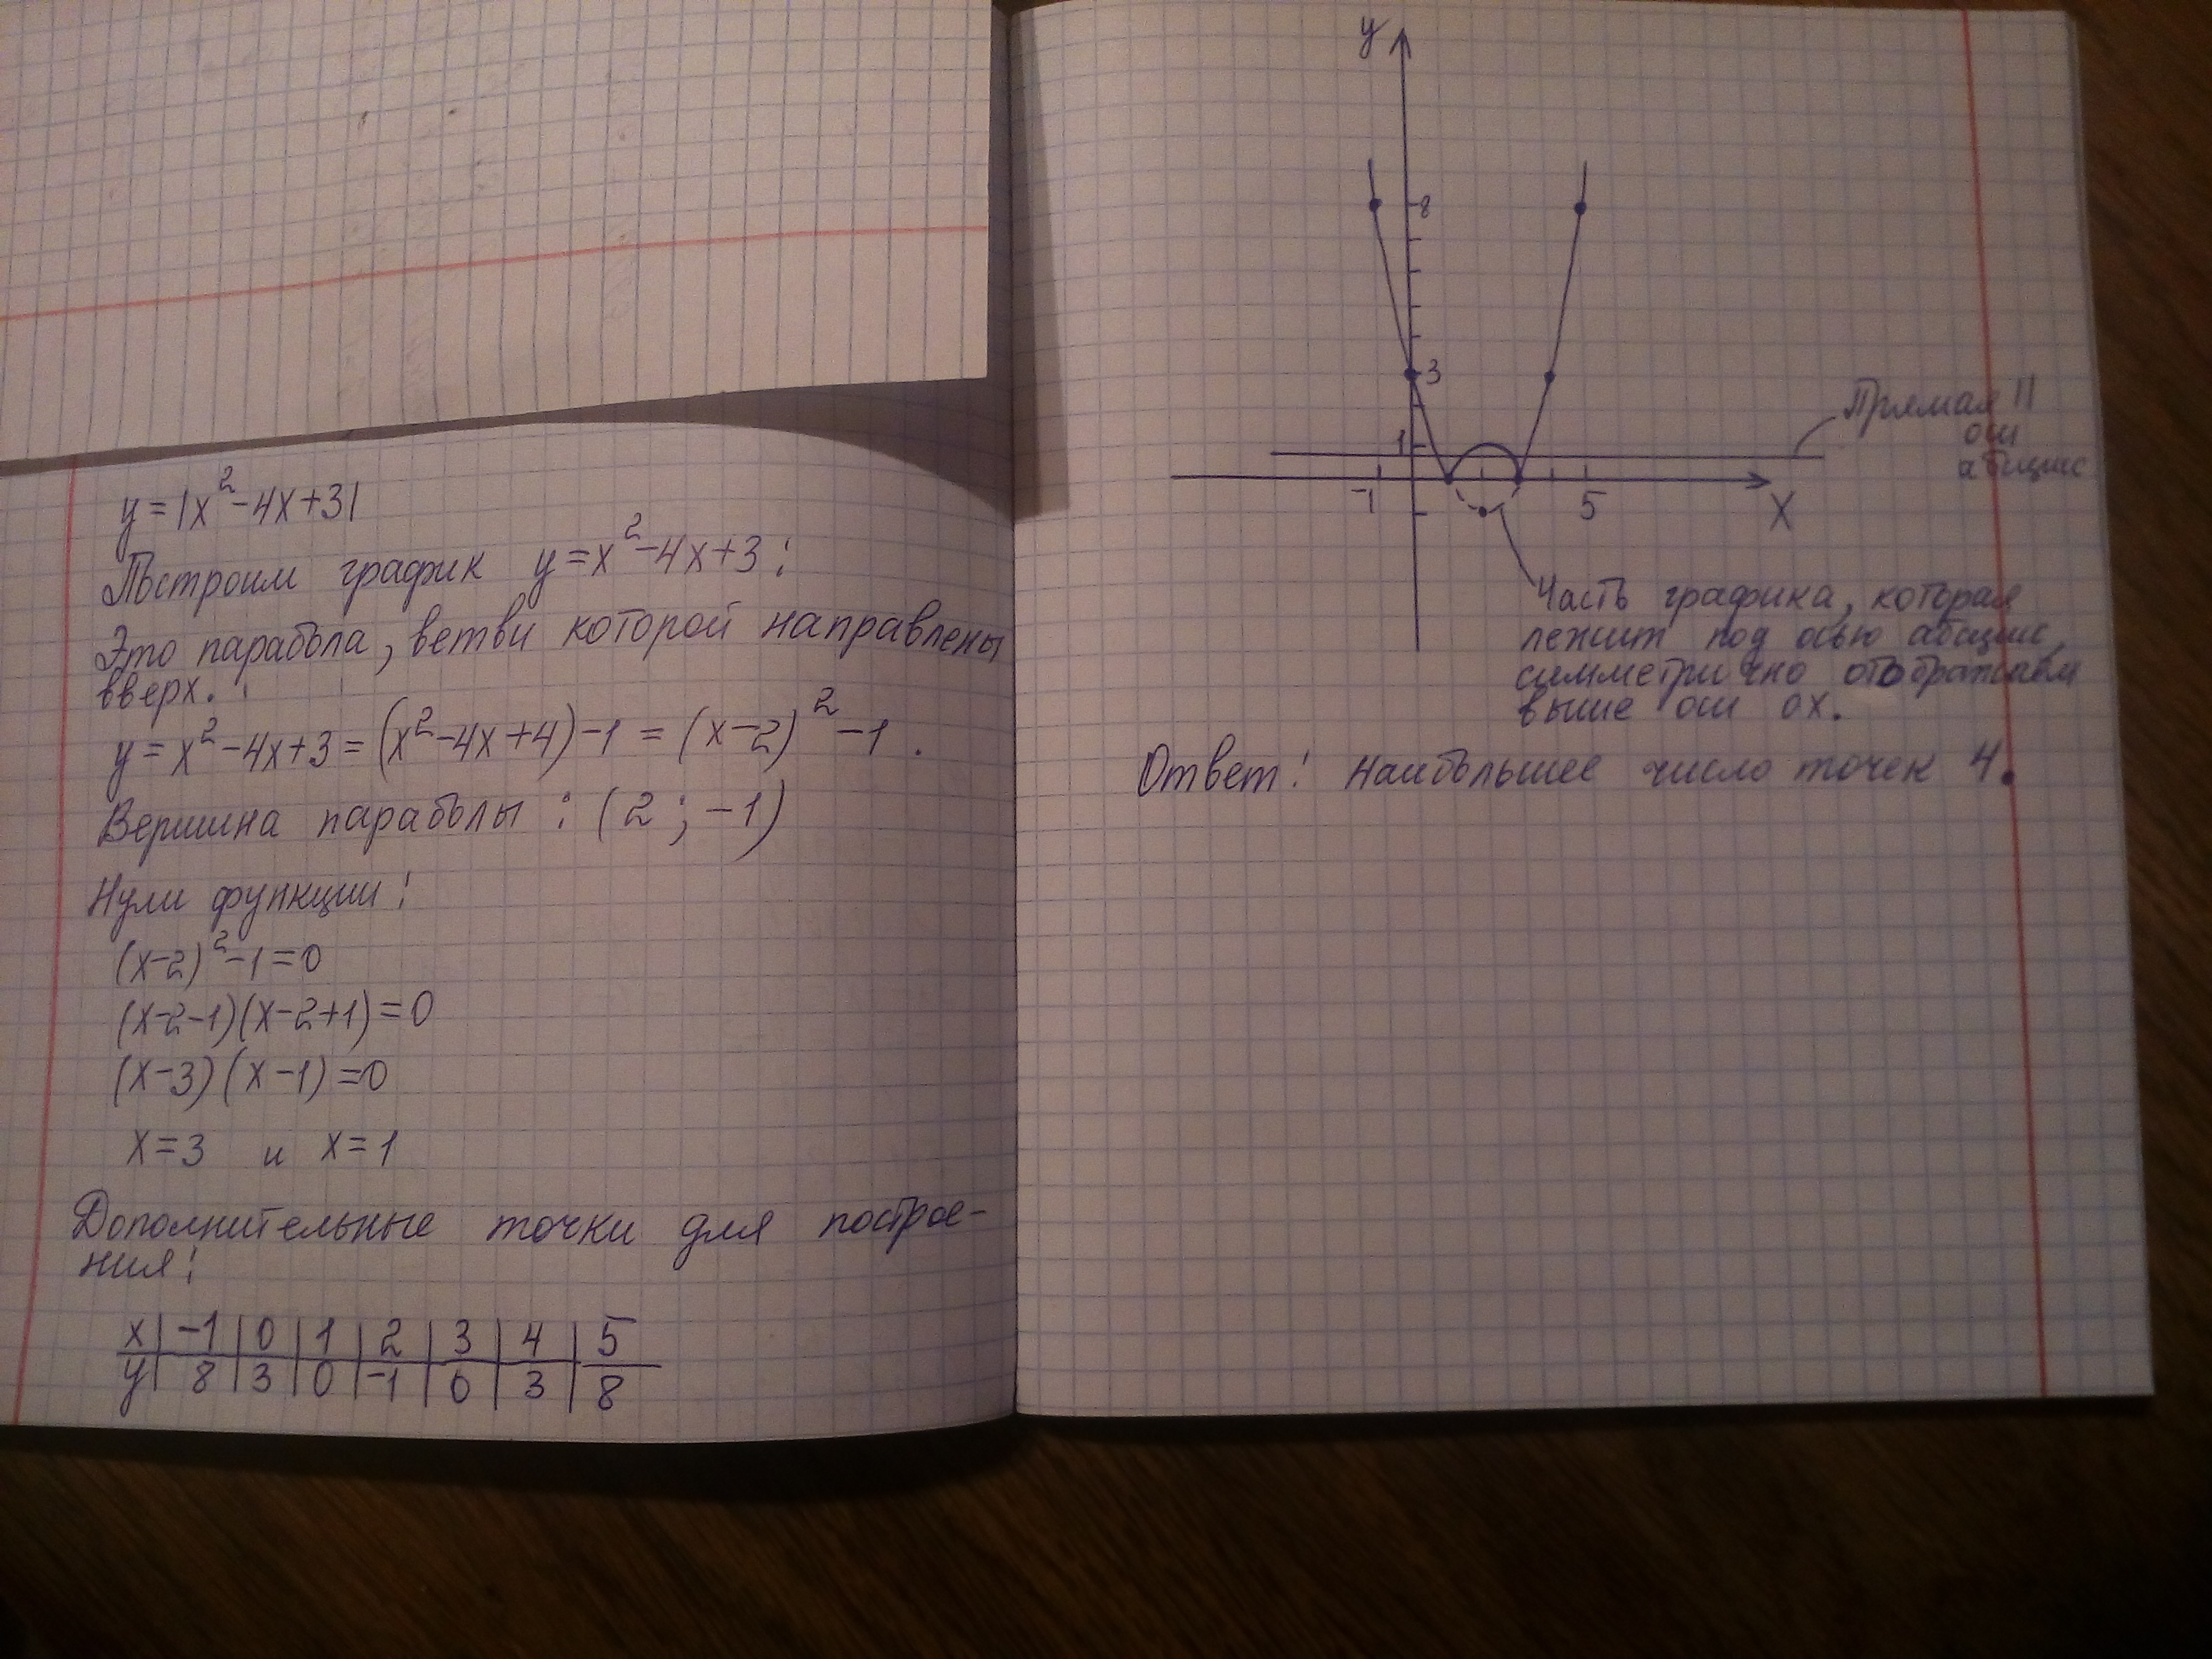 y = |x²-4x+3|
Построим график y = x²-4x+3:
Это парабола, ветви которой направлены
вверх.
y = x²-4x+3 = (x²-4x+4)-1 = (x-2)²-1.
Вершина параболы: (2; -1)
Нули функции:
(x-2)²-1=0
(x-2-1)(x-2+1)=0
(x-3)(x-1)=0
x=3 и x=1
Дополнительные точки для построе-
ния:
x | -1 | 0 | 1 | 2 | 3 | 4 | 5
y | 8 | 3 | 0 | -1 | 0 | 3 | 8
y
8
3
1
-1 5 X
Прямая ||
оси
абсцисс
Часть графика, которая
лежит под осью абсцисс,
симметрично отображаем
выше оси ox.
Ответ: наибольшее число точек 4.